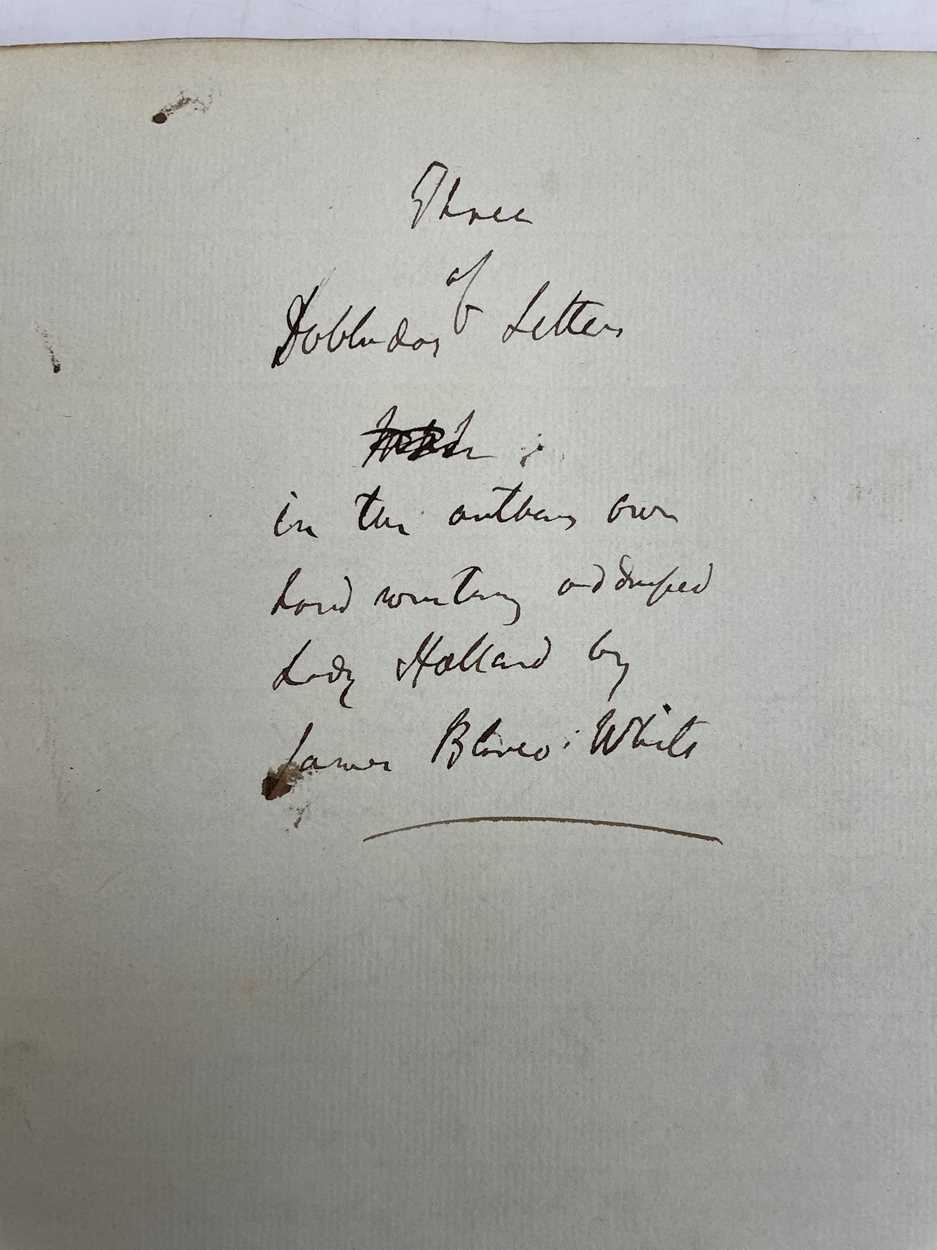 Three
of
Doblados Letters
in the authors own
hand writing addressed
Lady Holland by
James Blanco White